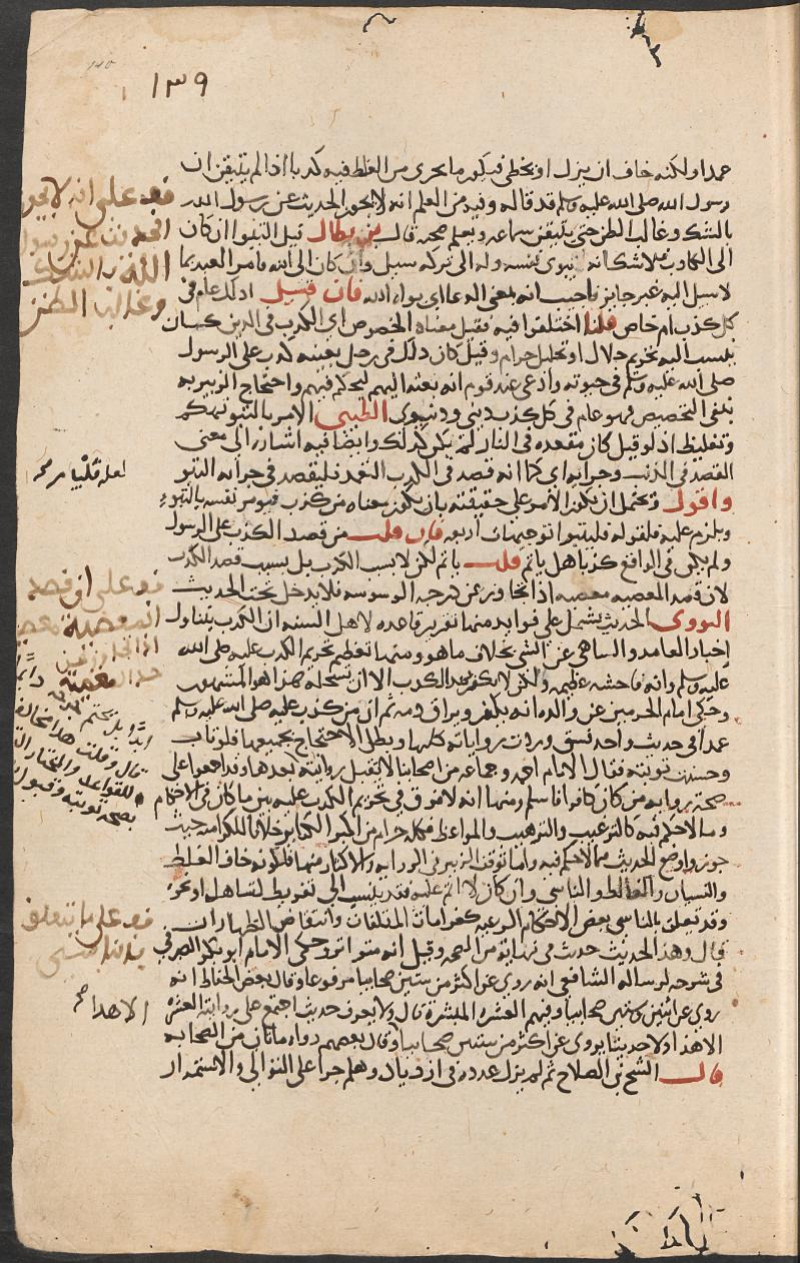 ١٣٩
عمدا ولكنه خاف ان يزل او يخطي فيكون ما يجري من الغلط فيه كذبا اذا لم يتيقن ان
رسول الله صلى الله عليه وسلم قد قاله وفيه من العلم انه لا يجوز الحديث عن رسول الله
بالشك وغالب الظن حتى يتيقن سماعه ويعلم صحته قال بن بطال قيل التبوا ان كان
الى الكاذب فلا شك انه لا يبوي نفسه وله الى تركه سبيل وان كان الى الله فامر العبد بما
لا سبيل اليه غير جايز فاجيب انه بمعنى الدعا اي بواه الله فان قيل اذلك عام في
كل كذب ام خاص قلنا اختلفوا فيه فقيل معناه الخصوص اي الكذب في الدين كمن
ينسب اليه تحريم حلال او تحليل حرام وقيل كان ذلك في رجل بعينه كذب على الرسول
صلى الله عليه وسلم في حيوته وادعى عند قوم انه بعثه اليهم ليحكم فيهم واحتجاج الزبير به
ينفي التخصيص فهو عام في كل كذب ديني ودنيوي الطيبي الامر بالتبو تهكم
وتغليظ اذ لو قيل كان مقعده في النار لم يكن كذلك وايضا فيه اشارة الى معنى
القصد في الذنب وجزائه اي كما انه قصد في الكذب التعمد فليقصد في جزائه التبو
واقول ويحتمل ان يكون الامر على حقيقته بان يكون معناه من كذب فليومر نفسه بالتبوء
ويلزم عليه فلقوله فليتبوا توجيهات اربعة فان قلت من قصد الكذب على الرسول
ولم يكن في الواقع كذبا هل ياثم قلت ياثم لكن لا بسبب الكذب بل بسبب قصد الكذب
لان قصد المعصيه معصيه اذا تجاوز عن درجه الوسوسه فلا يدخل تحت الحديث
النووي الحديث يشتمل على فوايد منها تقرير قاعده لاهل السنه ان الكذب يتناول
اخبار العامد والساهي عن الشي بخلاف ما هو ومنها تعظيم تحريم الكذب عليه صلى الله
عليه وسلم وانه فاحشه عظيمه ولكن لا يكفر بهذا الكذب الا ان يستحله هذا هو المشهور
وحكى امام الحرمين عن والده انه يكفر ويراق دمه ثم ان من كذب عليه صلى الله عليه وسلم
عمدا في حديث واحد فسق وردت رواياته كلها وبطل الاحتجاج بجميعها فلو تاب
وحسنت توبته فقال الامام احمد وجماعه من اصحابنا لا تقبل روايته بعدها وقد اجمعوا على
صحة روايه من كان كافرا فاسلم ومنها انه لا فرق في تحريم الكذب عليه بين ما كان في الاحكام
وما لا حكم فيه كالترغيب والترهيب والمواعظ فكله حرام من اكبر الكباير خلافا للكراميه حيث
جوزوا وضع الحديث فيما لا حكم فيه وانما توقف الزبير في الروايه والاكثار منها فلكونه خاف الغلط
والنسيان والغالط والناسي وان كان لا اثم عليه فقد ينسب الى تفريط لتساهل او نحوه
وقد تعلق بالناسي بعض الاحكام الشرعيه كغرامات المتلفات وانتقاض الطهارات
قال وهذا الحديث حديث في نهاية من الصحه وقيل انه متواتر وحكى الامام ابو بكر الصيرفي
في شرحه لرسالة الشافعي انه روي عن اكثر من ستين صحابيا مرفوعا وقال بعض الحفاظ انه
روي عن اثنين وستين صحابيا وفيهم العشره المبشرة قال ولا يعرف حديث اجتمع على روايته العشره
الا هذا ولا حديثا يروى عن اكثر من ستين صحابيا وقال بعضهم رواه مائتان من الصحابه
قال الشيخ بن الصلاح ثم لم يزل عدده في ازدياد وهلم جرا على التوالي والاستمرار
قف على انه لا يجوز
الحديث عن رسول
الله بالشك
وغالب الظن
لعله قلبا مر صح
قف على ان قصد
المعصية معصية
اذا تجاوز عن
حد
ابدا بل يحتم جرحه دائما
قال وقلت هذا مخالف
للقواعد والمختار ال
بصحه توبته وقبول
قف على ما يتعلق
بالناسي
الا هذا صح